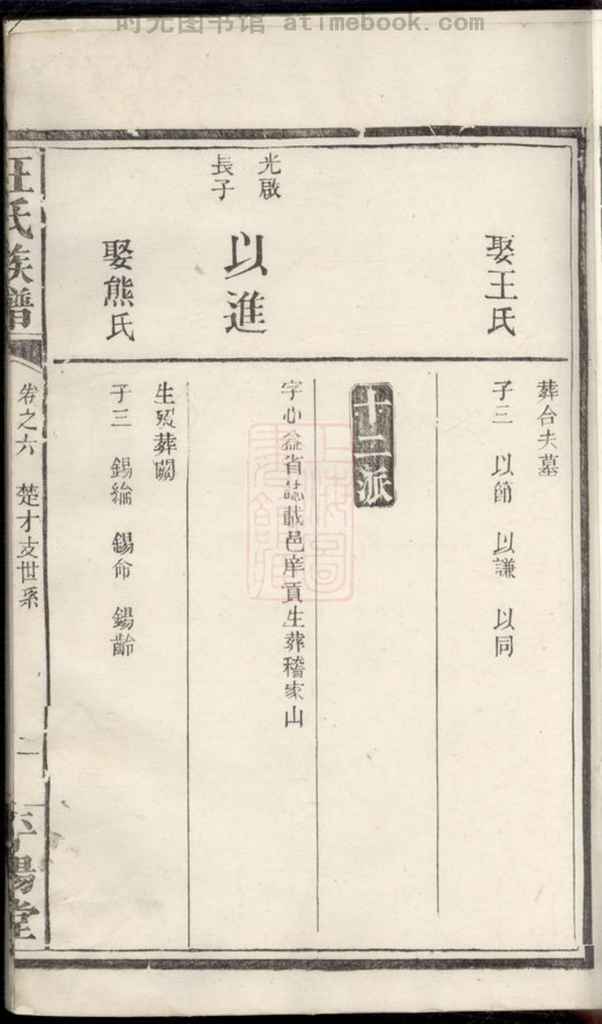 时光图书馆 atimebook.com
葬台夫墓
娶王氏
子三 以節 以謙 以同
十二派
光啟
長子
以進
字心益省誌載邑庠貢生葬稽家山
生歿葬闕
娶熊氏
子三 錫綸 錫命 錫齡
氏族譜
卷之六 楚才支世系
二
陽堂